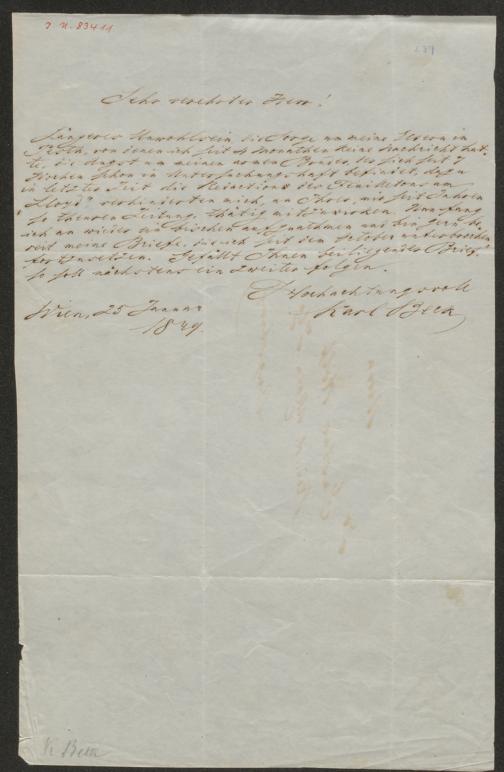 J. N. 83411
Sehr verehrter Herr!
Längeres Unwohlsein, die Sorge um meine Eltern in
Pesth, von denen ich seit 4 Monathen keine Nachricht hat-
te, die Angst um meinen armen Bruder, der sich seit 7
Wochen schon in Untersuchungshaft befindet, dazu
in letzter Zeit die Redaction des Feuilletons am
"Lloyd" verhinderten mich, an Ihrer, mir seit Jahren
so theuren Zeitung, thätig mitzuwirken. Nun fang
ich an wieder ein bischen aufzuathmen und bin gern be-
reit meine Briefe, die ich seit dem October unterbrochen
fortzusetzen. Gefällt Ihnen beiliegender Brief,
so soll nächstens ein zweiter folgen.
Hochachtungsvoll
Karl Beck
Wien, 25 Januar
1849.
K. Beck